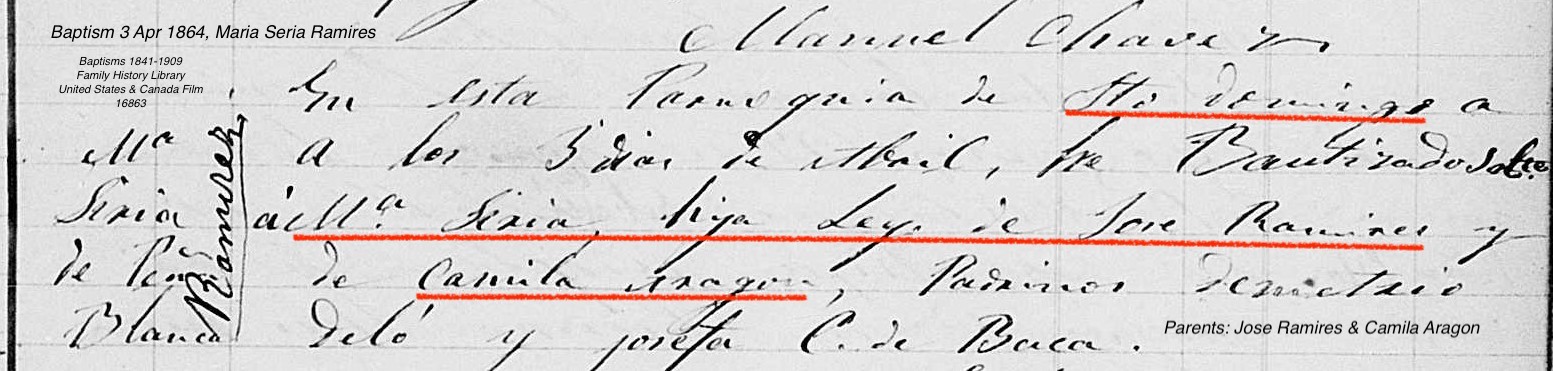 Baptism 3 Apr 1864, Maria Seria Ramires
Baptisms 1841-1909
Family History Library
United States & Canada Film
16863
Manuel Chavez
En esta Parroquia de Sto domingo a
A los 3 dias de Abril, fue Bautizado
á Mª Seria, hija Ley. de Jose Ramires y
de Camila Aragon, Padrinos demetrio
deló y josefa C. de Baca.
Mª
Seria
de Peña
Blanca
Ramirez
Parents: Jose Ramires & Camila Aragon